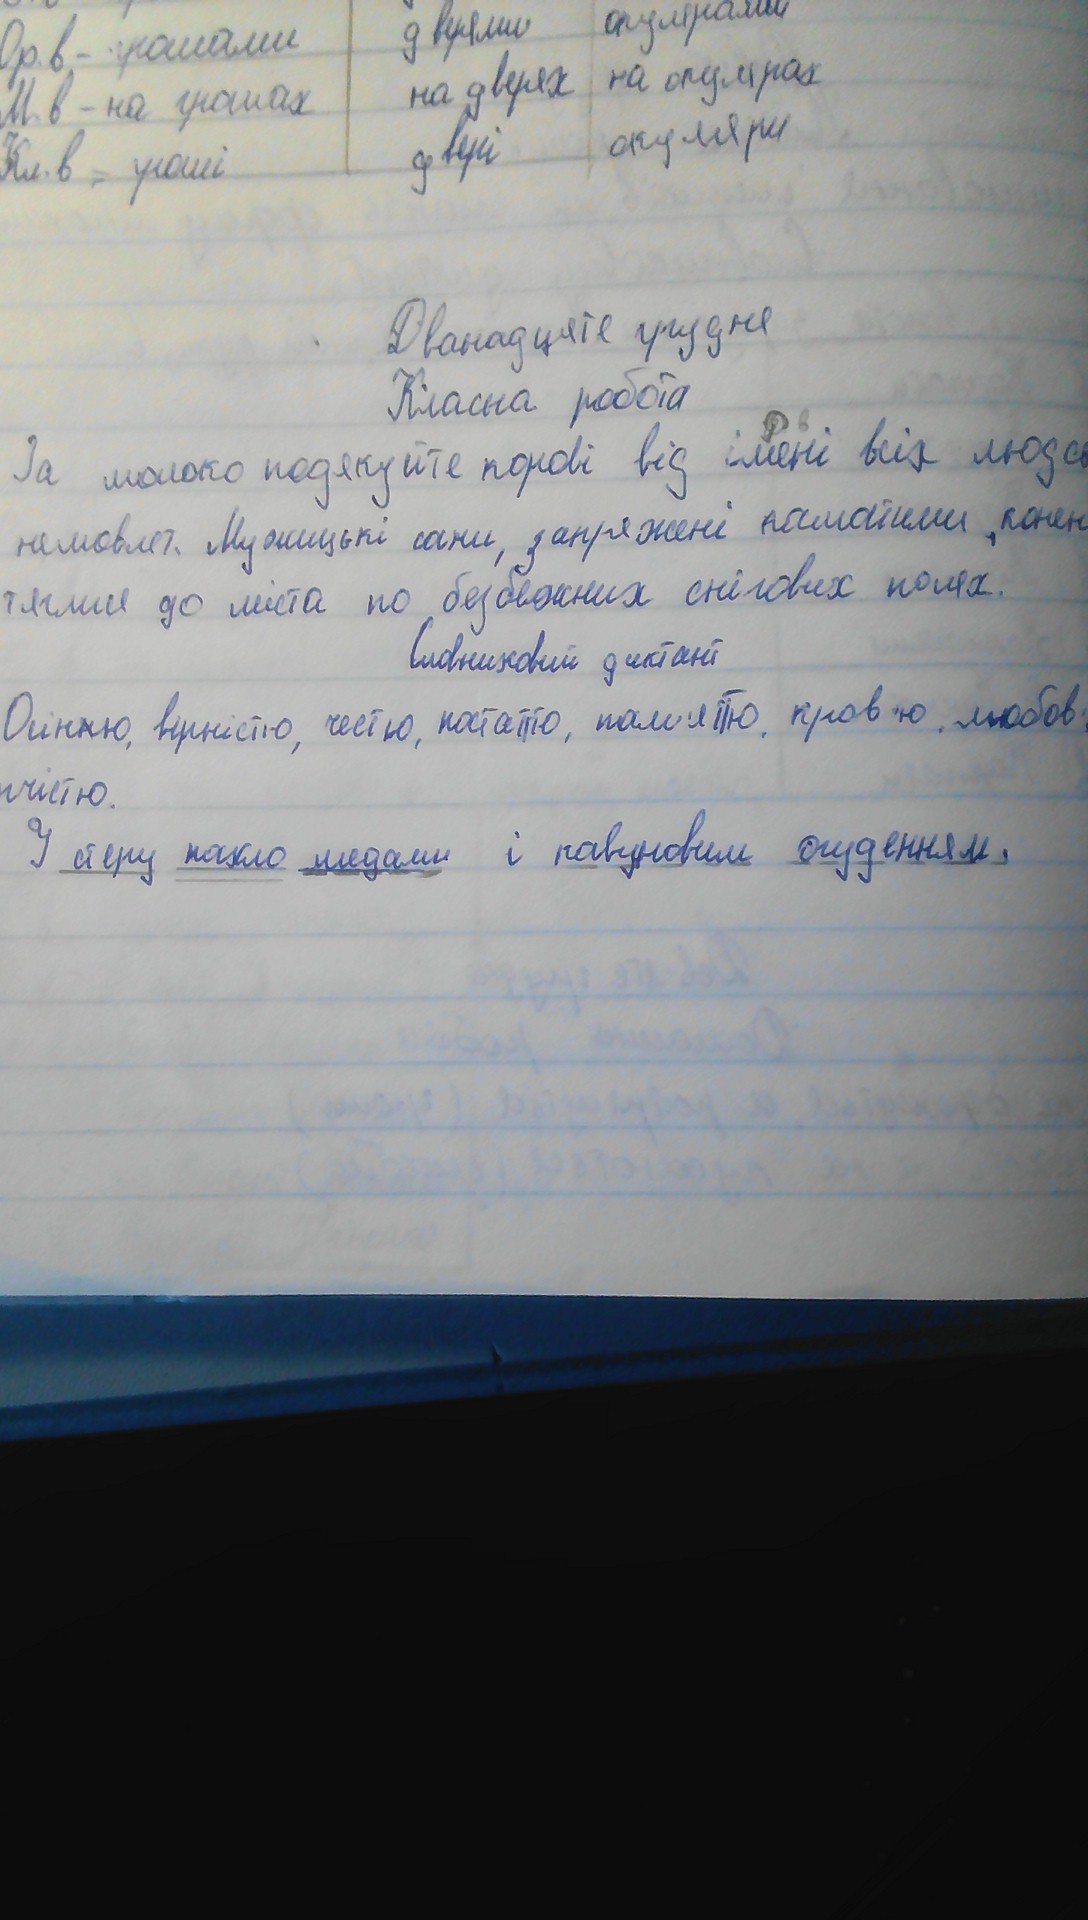 Ор.в - грошами дверями окулярами
М.в - на грошах на дверях на окулярах
Кл.в - гроші двері окуляри
Дванадцяте грудня
Класна робота
За молоко подякуйте корові від імені всіх людсь
немовлят. Мужицькі сани, запряжені кататими конен
тяглися до міста по безбежних снігових полях.
Словниковий диктант
Осінню, вірністю, честю, постаттю, пам'яттю, кров'ю, любов
У степу пахло медами і кавуновим огудинням.